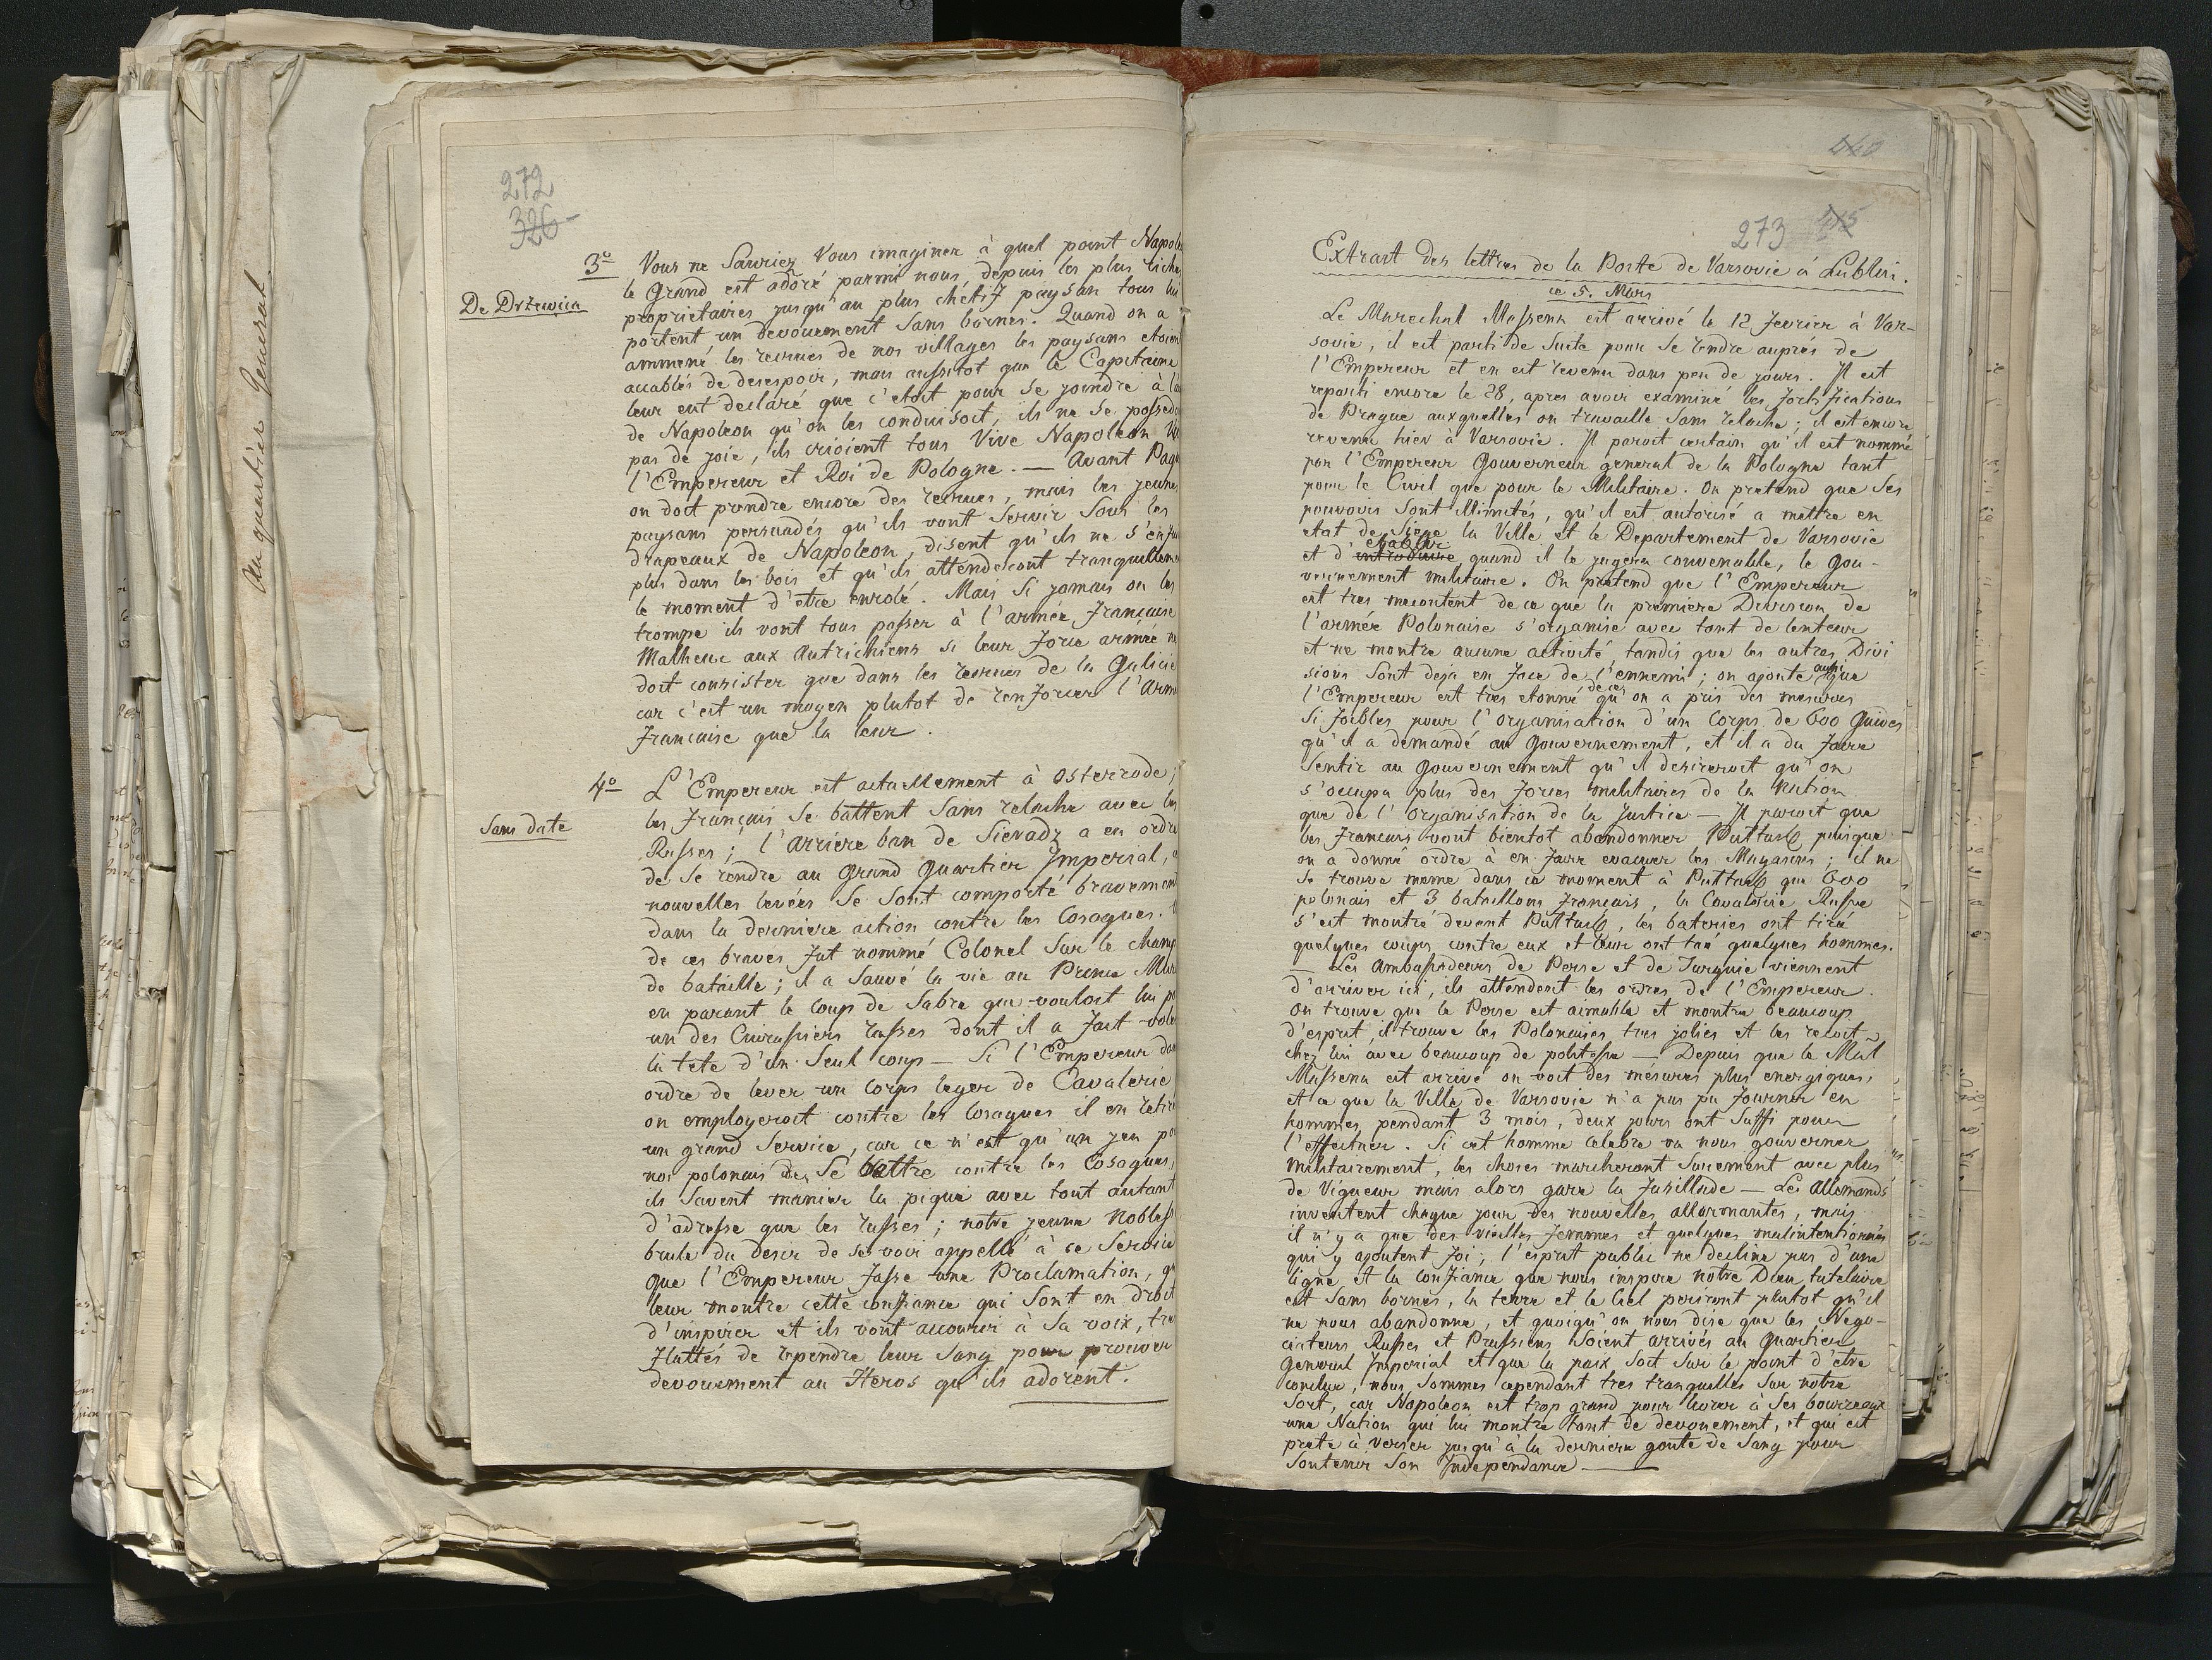 Au quartier General
272
326
3º Vous ne Sauriez Vous imaginer à quel point Napole
De Drzewica
le Grand est adoré parmi nous, depuis les plus riche
proprietaires jusqu'au plus chétif paysan tous lui
portent un devouement Sans bornes. Quand on a
ammené les recrues de nos villages les paysans etoien
accablés de desespoir, mais aussitot que le Capitaine
leur eut declaré que c'etoit pour se joindre à l'a
de Napoleon qu'on les conduisoit, ils ne se possedo
pas de joie, ils crioient tous Vive Napoleon
l'Empereur et Roi de Pologne. — Avant Paqu
on doit prendre encore des recrues, mais les jeunes
paysans persuadés qu'ils vont Servir Sous les
drapeaux de Napoleon, disent qu'ils ne s'enfui
plus dans les bois et qu'ils attenderont tranquilleme
le moment d'etre enrolé. Mais Si jamais on les
trompe ils vont tous passer à l'armée française
Malheur aux Autrichiens si leur force armée ne
doit consister que dans les recrues de la Galicie
car c'est un moyen plutot de renforcer l'Arm
francaise que la leur.
4º L'Empereur est actuellement à Osterrode;
Sans date
les français Se battent Sans relache avec les
Russes; l'arriere ban de Sieradz a eu ordre
de Se rendre au Grand Quartier Imperial,
nouvelles levées Se Sont comporté bravement
dans la derniere action contre les Cosaques.
de ces braves fut nommé Colonel Sur le champ
de bataille; il a Sauvé la vie au Prince Mur
en parant le coup de Sabre que vouloit lui po
un des Cuirassiers russes dont il a fait voler
la tete d'un Seul coup — Si l'Empereur don
ordre de lever un Corps leger de Cavalerie
on employeroit contre les Cosaques il en retire
un grand Service, car ce n'est qu'un jeu po
nos polonais de Se battre contre les Cosaques,
ils Savent manier la pique avec tout autant
d'adresse que les russes; notre jeune Nobless
brule du desir de se voir appellé à ce Service
que l'Empereur fasse une Proclamation, qu
leur montre cette confiance qui Sont en droit
d'inspirer et ils vont accourir à Sa voix, tre
flattés de rependre leur Sang pour prouver
devouement au Heros qu'ils adorent.
273
Extrait des lettres de la Poste de Varsovie à Lublin.
ce 5. Mars
Le Marechal Massena est arrivé le 12 fevrier à Var-
sovie, il est parti de Suite pour Se rendre auprés de
l'Empereur et en est revenu dans peu de jours. Il est
reparti encore le 28, apres avoir examiné les fortifications
de Prague auxquelles on travaille Sans relache; il est encore
revenu hier à Varsovie. Il paroit certain qu'il est nommé
par l'Empereur Gouverneur general de la Pologne tant
pour le Civil que pour le Militaire. On pretend que Ses
pouvoirs Sont illimités, qu'il est autorisé a mettre en
etat de Siege la Ville et le Departement de Varsovie
etablir
et d'introduire quand il le jugera convenable, le Gou-
vernement militaire. On pretend que l'Empereur
est tres mecontent de ce que la premiere Division de
l'armée Polonaise s'organise avec tant de lenteur
et ne montre aucune activité tandis que les autres Divi
sions Sont deja en face de l'ennemi; on ajoute aussi que
l'Empereur est tres etonné de ce qu'on a pris des mesures
Si foibles pour l'organisation d'un Corps de 600 Guides
qu'il a demandé au Gouvernement, et il a du faire
Sentir au Gouvernement qu'il desireroit qu'on
s'occupa plus des forces militaires de la Nation
que de l'Organisation de la Justice — Il paroit que
les francais vont bientot abandonner Pultusk puisque
on a donné ordre à en faire evacuer les Magasins; il ne
Se trouve meme dans ce moment à Pultusk que 600
polonais et 3 bataillons francais, la Cavalerie Russe
s'est montré devant Pultusk, les bateries ont tiré
quelques coups contre eux et leur ont tué quelques hommes.
— Les Ambassadeurs de Perse et de Turquie viennent
d'arriver ici, ils attendent les ordres de l'Empereur.
on trouve que le Perse est aimable et montre beaucoup
d'esprit, il trouve les Polonaises tres jolies et les recoit
chez lui avec beaucoup de politesse — Depuis que le Mal
Massena est arrivé on voit des mésures plus energiques,
et ce que la Ville de Varsovie n'a pas pu fournir en
hommes pendant 3 mois, deux jours ont Suffi pour
l'effectuer. Si cet homme celebre va nous gouverner
militairement, les choses marcheront Surement avec plus
de Vigueur mais alors gare la fusillade — Les Allemands
inventent chaque jour des nouvelles allarmantes, mais
il n'y a que des vieilles femmes et quelques malintentionnés
qui y ajoutent foi; l'esprit public ne decline pas d'une
ligne et la confiance que nous inspire notre Dieu tutelaire
est Sans bornes, la terre et le Ciel periront plutot qu'il
ne nous abandonne, et quoiqu'on nous dise que les Nego-
ciateurs Russes et Prussiens Soient arrivés au Quartier
General Imperial et que la paix Soit Sur le point d'etre
conclue, nous Sommes cependant tres tranquilles Sur notre
Sort, car Napoleon est trop grand pour livrer à Ses bourreaux
une Nation qui lui montre tant de devouement, et qui est
prete à verser jusqu'à la derniere goute de Sang pour
Soutenir Son Independance —